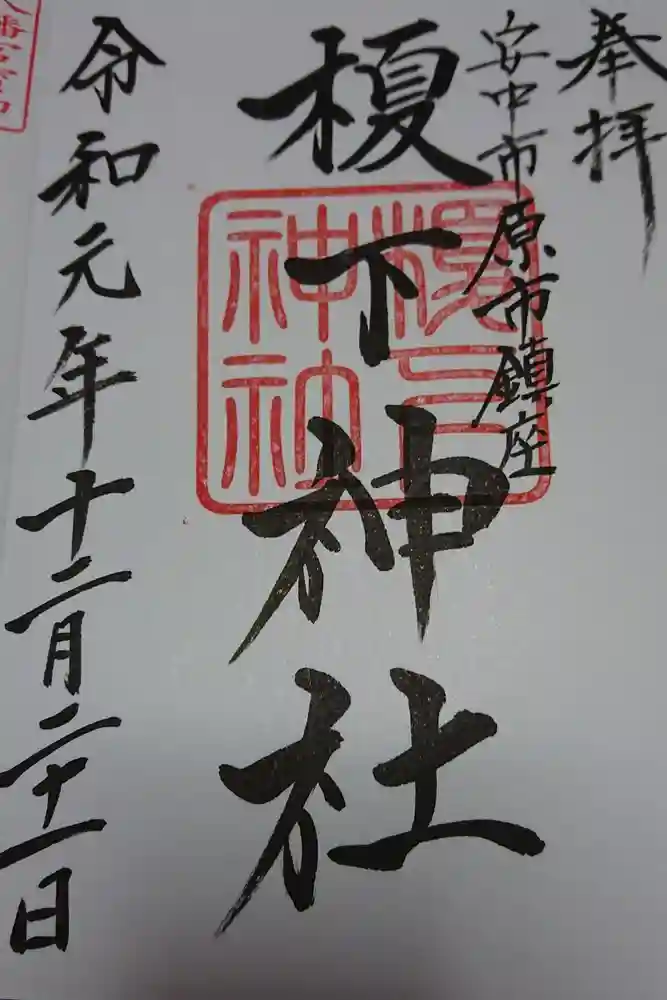 奉拝
安中市原市鎮座
榎下神社
榎下神社
令和元年十二月二十一日